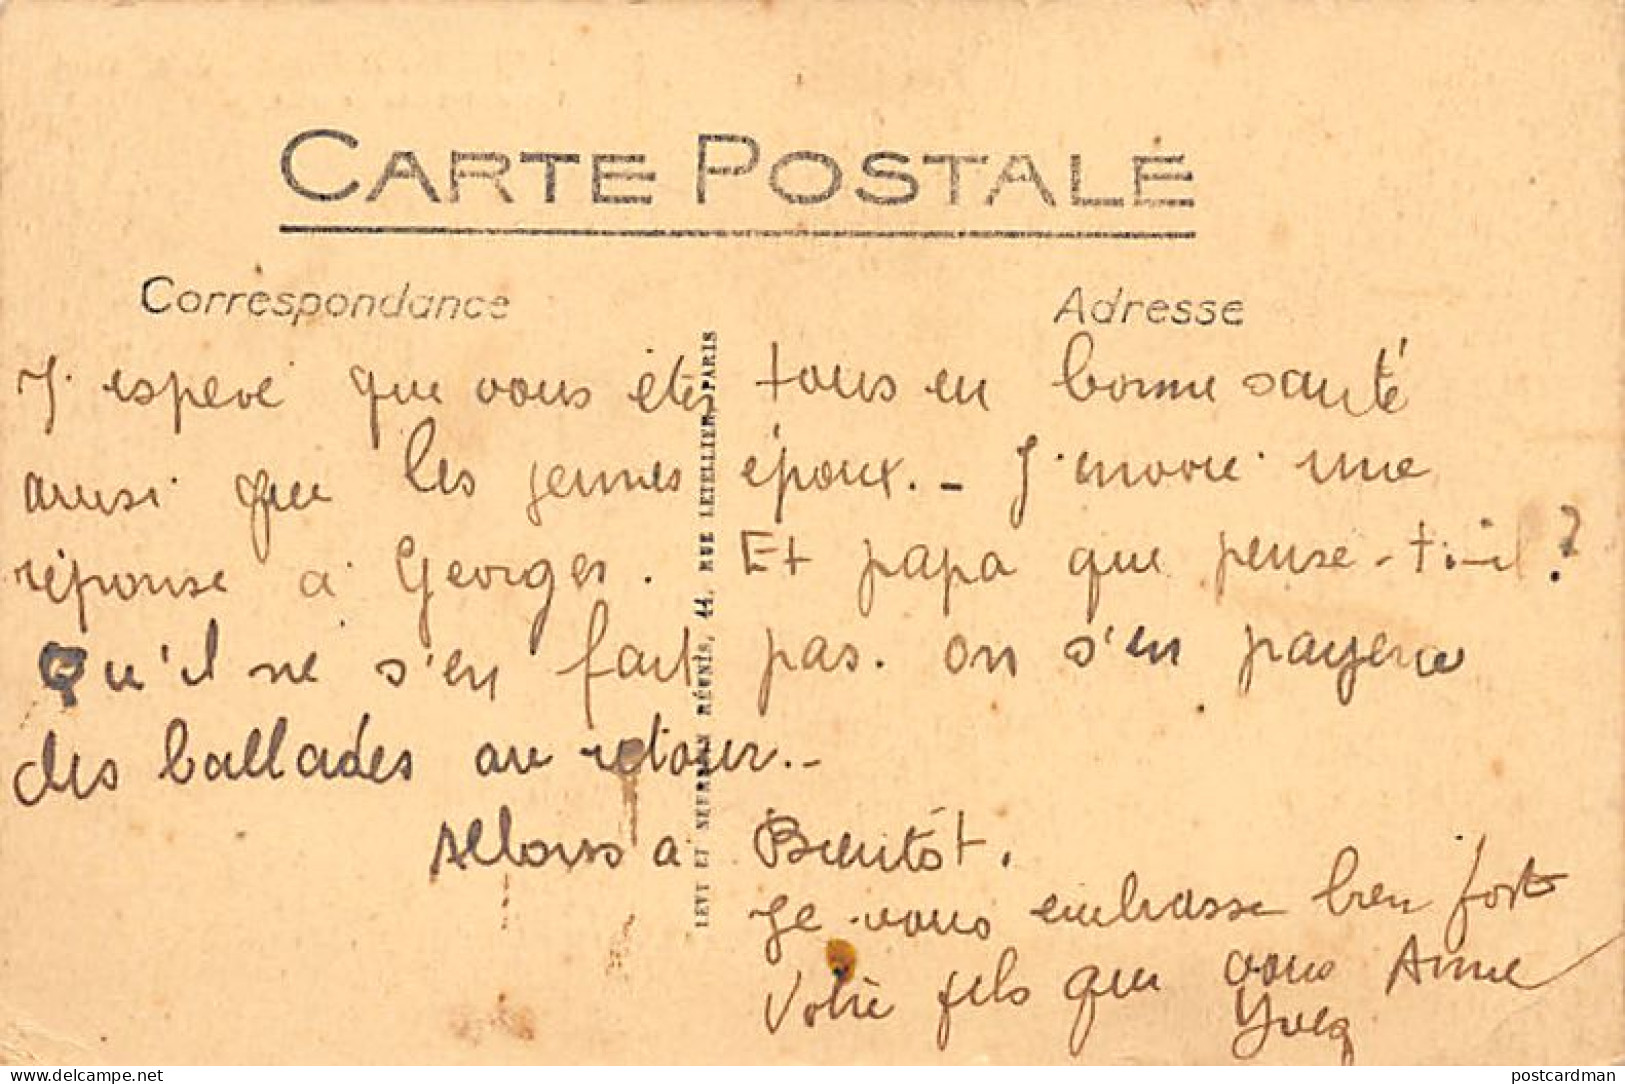 CARTE POSTALE
Correspondance
Adresse
J'espere que vous êtes tous en bonne santé
aussi que les jeunes époux. - J'envoie une
réponse à Georges. Et papa que pense-t-il?
Qu'il ne s'en fait pas. on s'en payera
des ballades au retour. -
Allons à Bientôt.
Je vous embrasse bien fort
Votre fils que vous Aime
Yves
LEVY ET NEURDEIN RÉUNIS, 44, RUE LETELLIER, PARIS
delcampe.net
postcardman